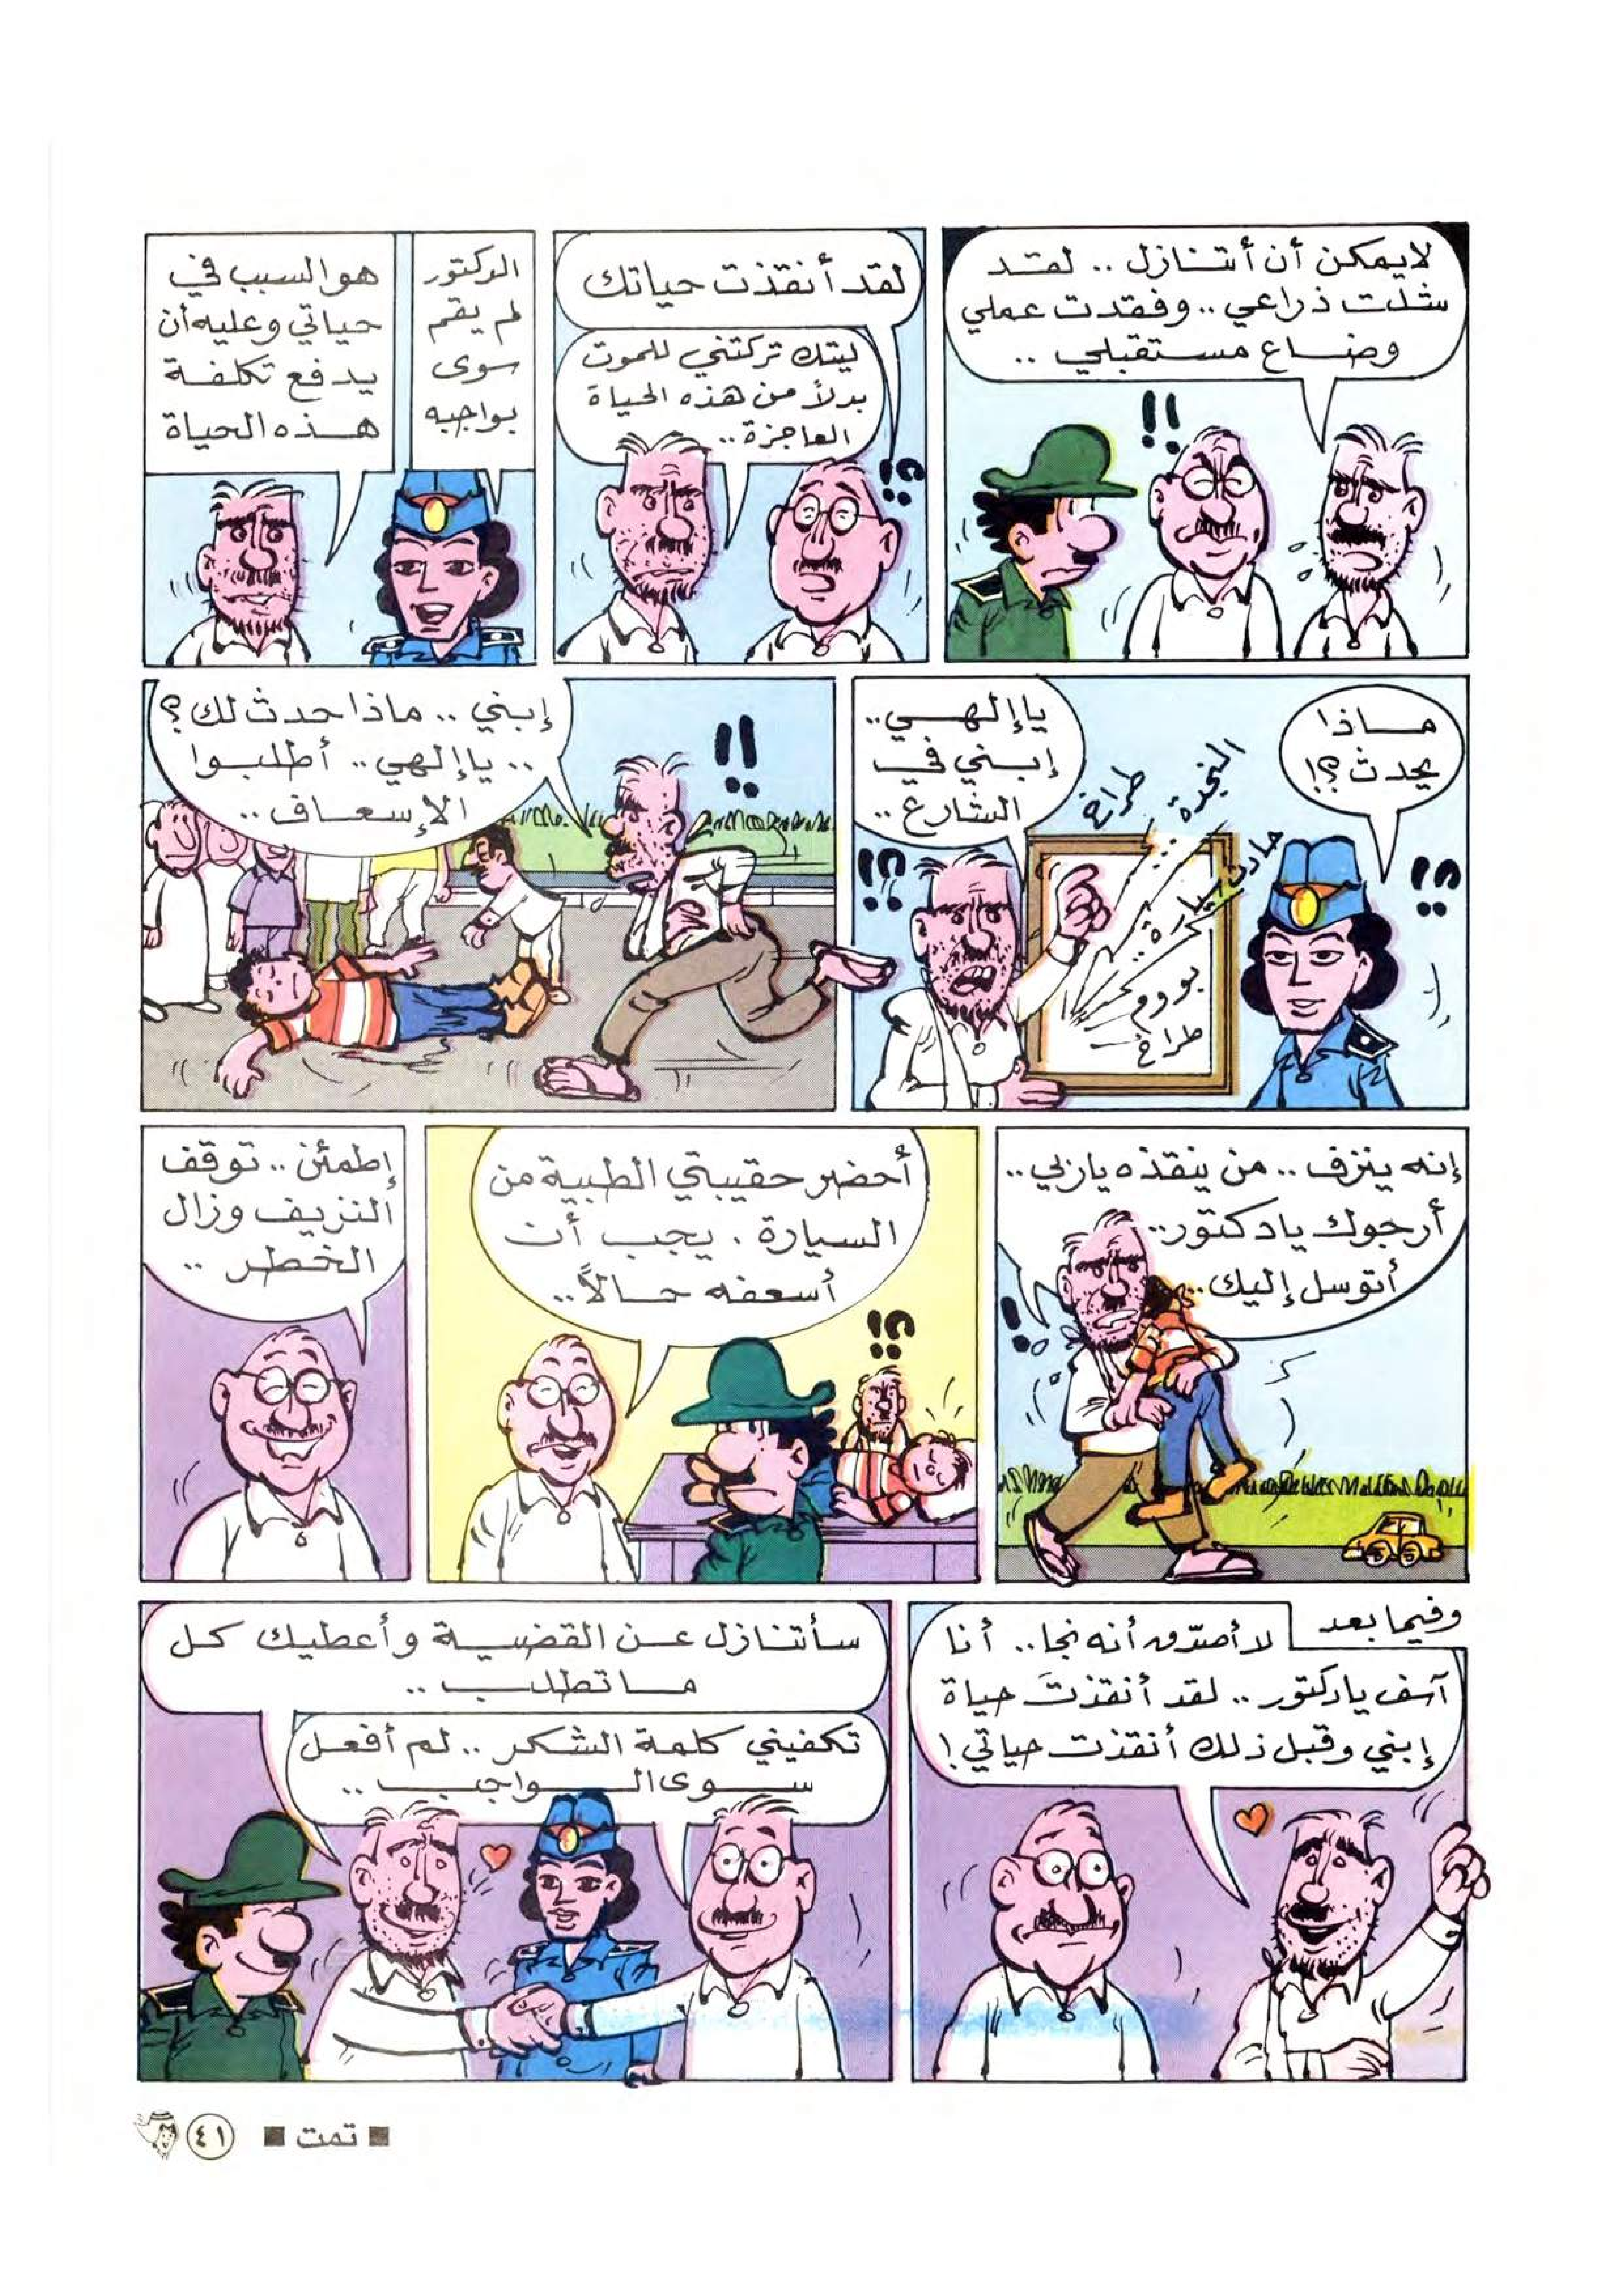 لايمكن أن أتنازل .. لقد
شلت ذراعي .. وفقدت عملي
وضاع مستقبلي ..
لقد أنقذت حياتك
ليتك تركتني للموت
بدلاً من هذه الحياة
العاجزة ..
الدكتور
لم يقم
سوى
بواجبه
هو السبب في
حياتي وعليه أن
يدفع تكلفة
هذه الحياة
ماذا
يحدث ؟!
النجدة
طراخ
حادث سيارة
بووم
طراخ
ياإلهي ..
إبني في
الشارع ..
إبني .. ماذا حدث لك ؟
.. ياإلهي .. أطلبوا
الإسعاف ..
إنه ينزف .. من ينقذه ياربي ..
أرجوك يادكتور ..
أتوسل إليك ..
أحضر حقيبتي الطبية من
السيارة . يجب أن
أسعفه حالاً ..
إطمئن .. توقف
النزيف وزال
الخطر ..
وفيما بعد
لا أصدّق أنه نجا .. أنا
آسف يادكتور .. لقد أنقذتَ حياة
إبني وقبل ذلك أنقذت حياتي !
سأتنازل عن القضية وأعطيك كل
ماتطلب ..
تكفيني كلمة الشكر .. لم أفعل
سوى الواجب ..
■ تمت ■
٤١